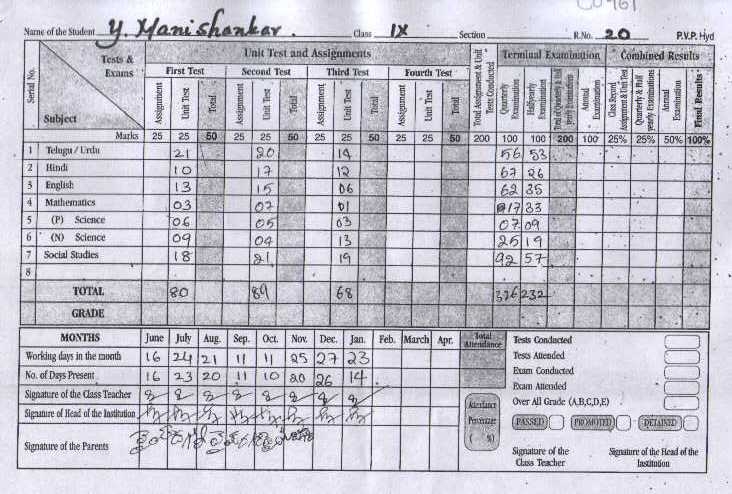 Name of the Student Y. Manishankar. Class IX Section R.No. 20 P.V.P. Hyd
Serial No. Tests & Exams Subject Unit Test and Assignments Total Assignment & Unit Test Conducted Terminal Examination Combined Results
First Test Second Test Third Test Fourth Test
Assignment Unit Test Total Assignment Unit Test Total Assignment Unit Test Total Assignment Unit Test Total Quarterly Examination Halfyearly Examination Total of Quarterly & Half yearly Examinations Annual Examination Class Record Assignment & Unit Test Quarterly & Half yearly Examinations Annual Examination Final Results
Marks 25 25 50 25 25 50 25 25 50 25 25 50 200 100 100 200 100 25% 25% 50% 100%
1 Telugu / Urdu 21 20 14 56 53
2 Hindi 10 17 12 67 26
3 English 13 15 06 62 35
4 Mathematics 03 07 01 17 33
5 (P) Science 06 05 03 07 09
6 (N) Science 09 04 13 25 19
7 Social Studies 18 21 19 92 57
8
TOTAL 80 89 68 326 232
GRADE
MONTHS June July Aug. Sep. Oct. Nov. Dec. Jan. Feb. March Apr. Total Attendance Tests Conducted
Working days in the month 16 24 21 11 11 25 27 23 Tests Attended
No. of Days Present 16 23 20 11 10 20 26 14 Exam Conducted
Signature of the Class Teacher Exam Attended
Signature of Head of the Institution Attendance Percentage ( %) Over All Grade (A,B,C,D,E)
Signature of the Parents PASSED PROMOTED DETAINED
Signature of the Class Teacher Signature of the Head of the Institution